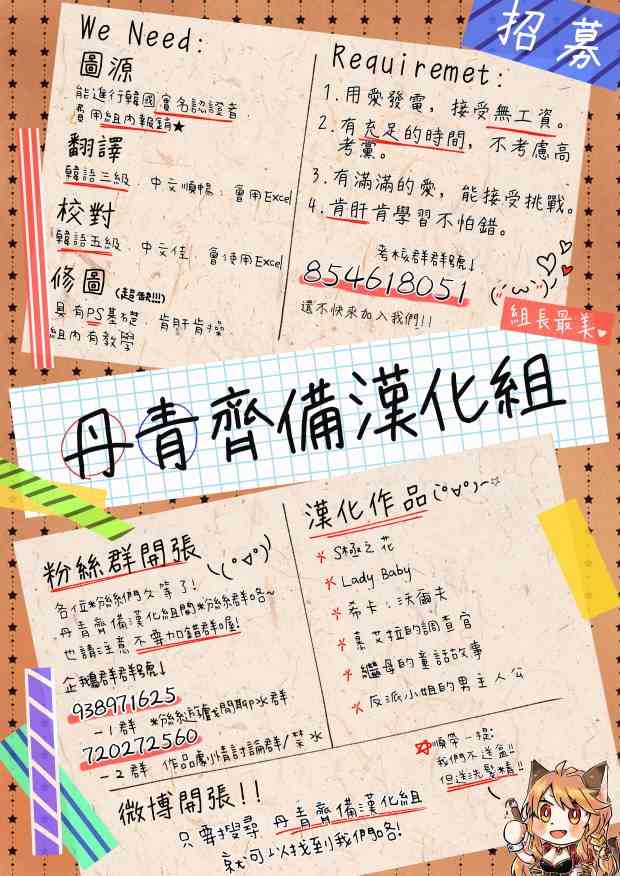 招募
We Need:
圖源
能進行韓國實名認證者.
費用組內報銷★
翻譯
韓語三級、中文順暢、會用Excel
校對
韓語五級、中文佳、會使用Excel
修圖(超缺!!!)
具有PS基礎、肯肝肯操
組內有教學
Requiremet:
1.用愛發電，接受無工資。
2.有充足的時間，不考慮高
考黨。
3.有滿滿的愛，能接受挑戰。
4.肯肝肯學習不怕錯。
考核群群號↓
854618051
還不快來加入我們!!
組長最美♥
丹青齊備漢化組
粉絲群開張
各位粉絲們久等了!
丹青齊備漢化組開粉絲群咯~
也請注意不要加錯群喔!
企鵝群群號↓
938971625
-1群
720272560
-2群 作品劇情討論群/禁水
漢化作品
S極之花
Lady Baby
希卡·沃爾夫
慕艾拉的調查官
繼母的童話故事
反派小姐的男主人公
微博開張!!
只要搜尋 丹青齊備漢化組
就可以找到我們咯!
順帶一提:
我們不送盆!!
但送洗髮精!!